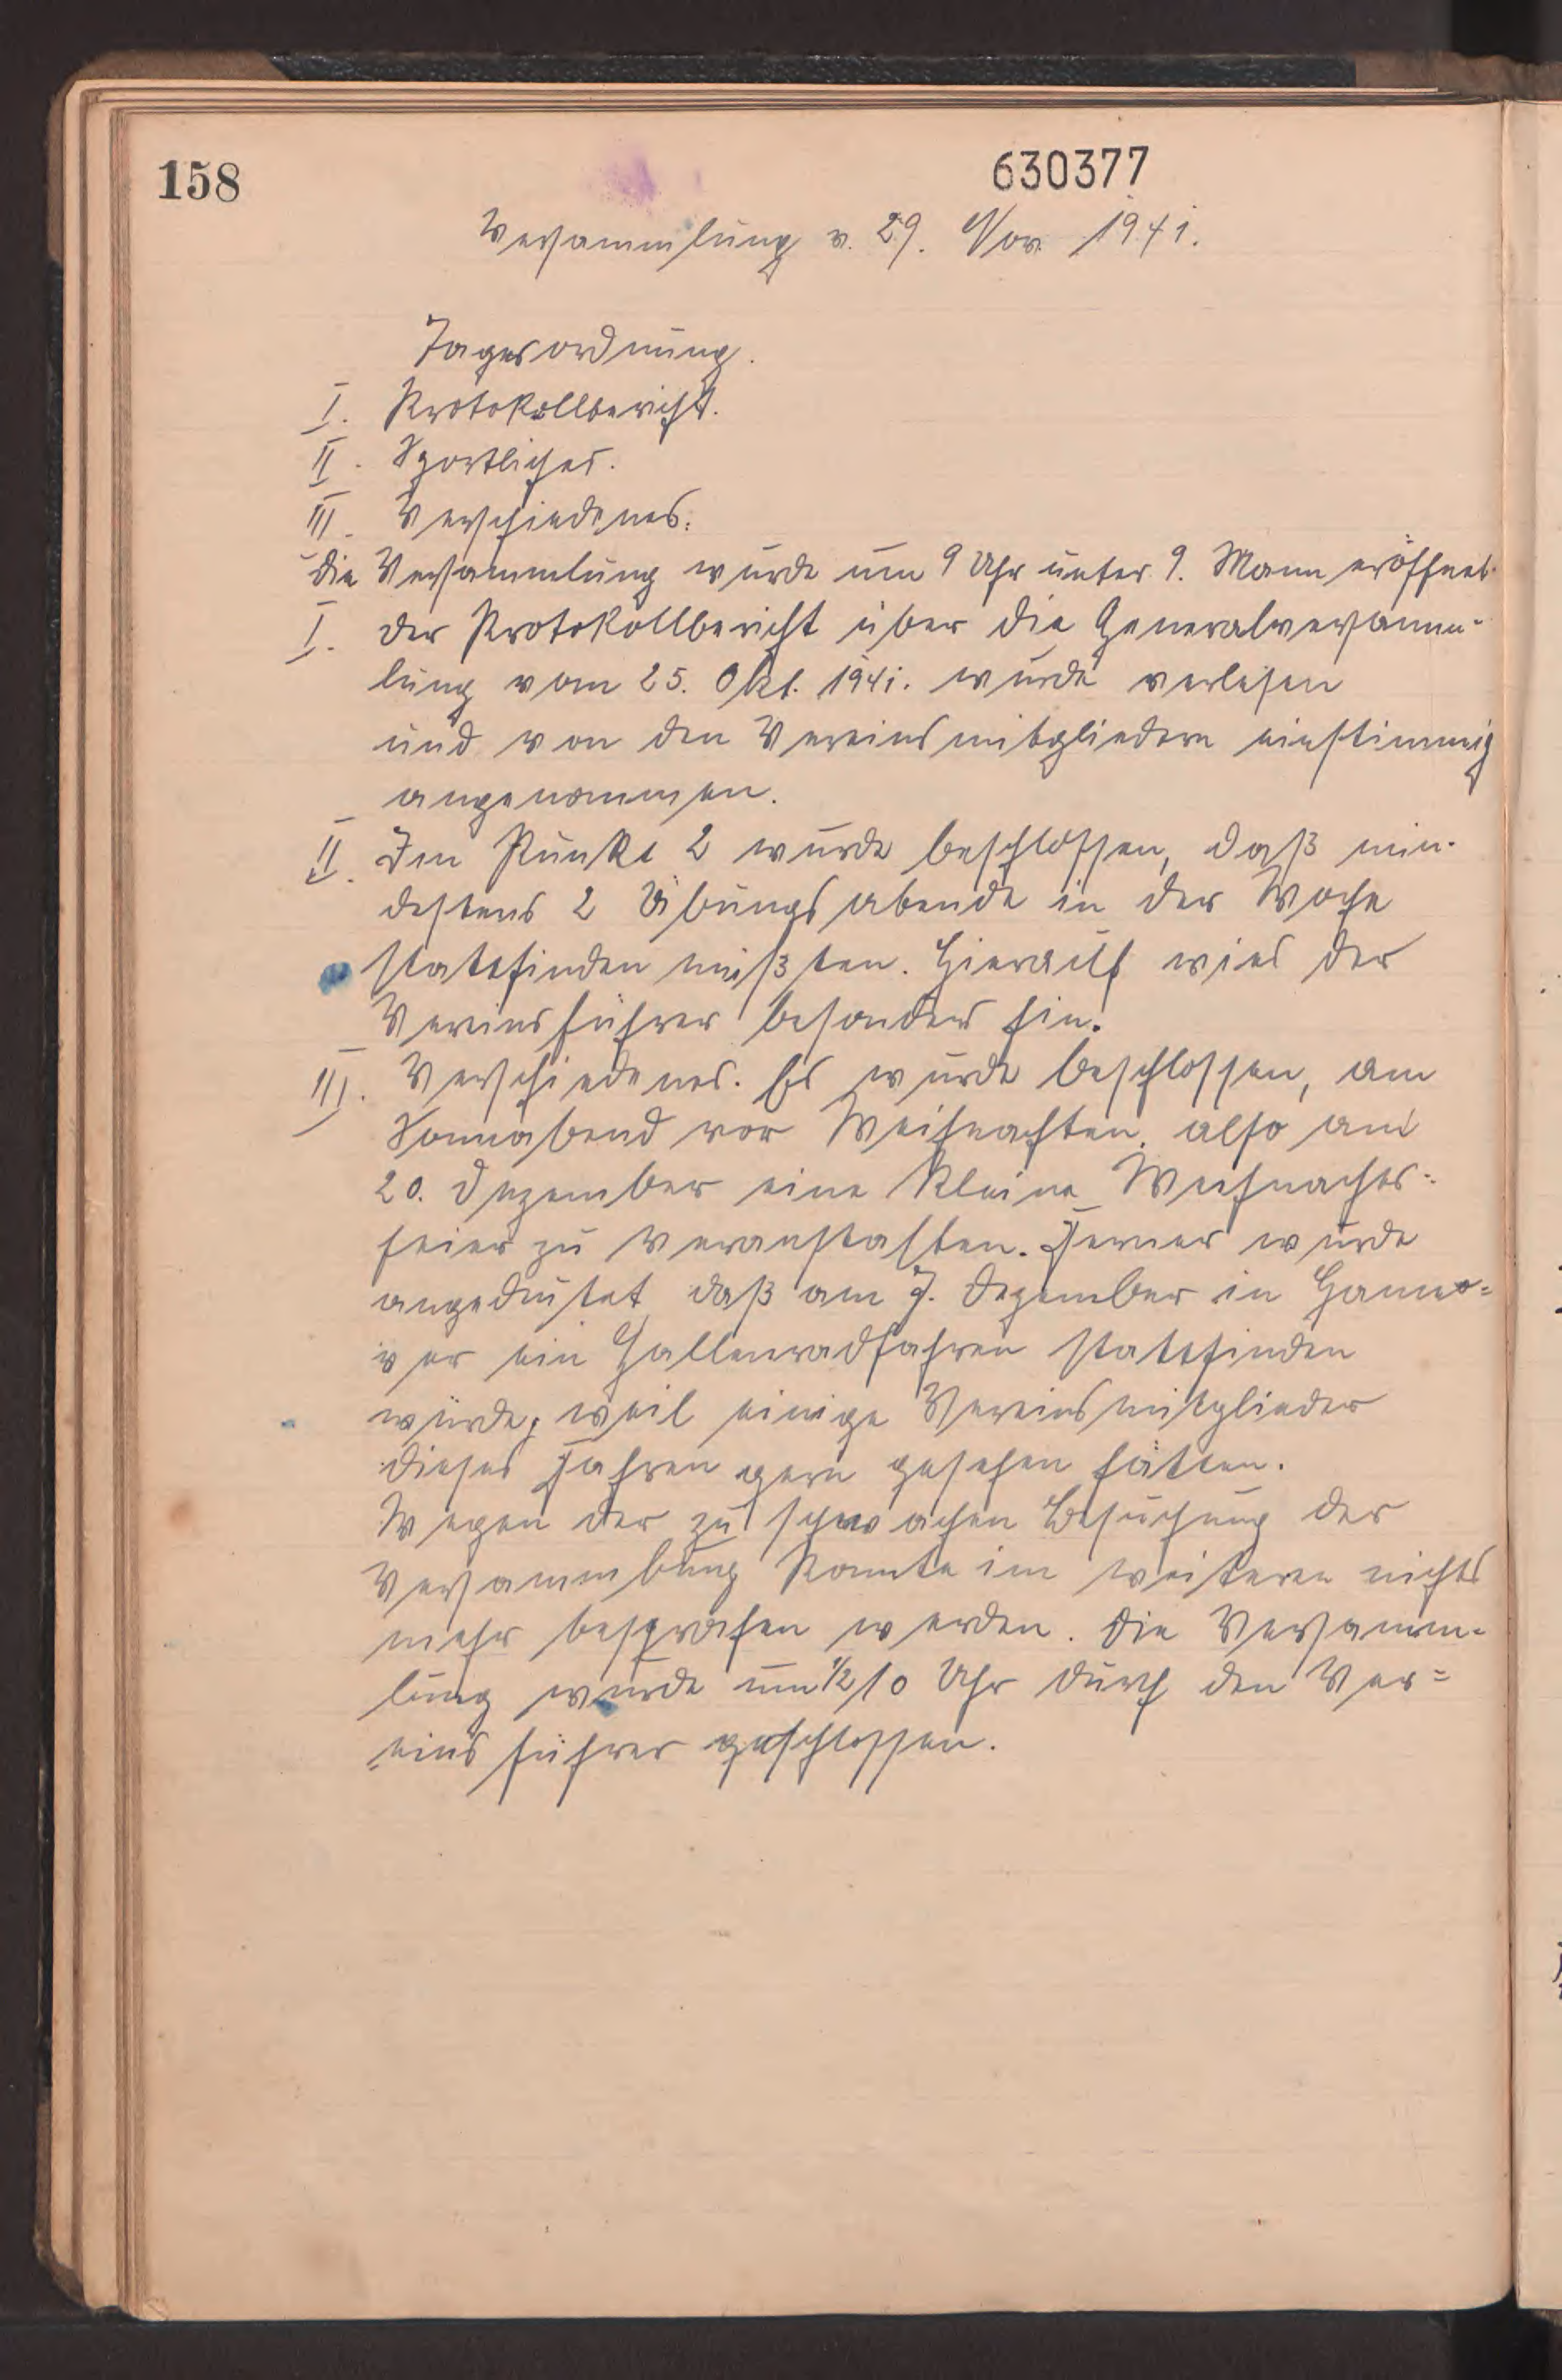 158
630377
Versammlung v. 29. Nov. 1941.
Tagesordnung.
I. Protokollbericht.
II. Sportliches.
III. Verschiedenes.
Die Versammlung wurde um 9 Uhr unter 9. Mann eröffnet.
I. Der Protokollbericht über die Generalversamm-
lung vom 25. Okt. 1941. wurde verlesen
und von den Vereinsmitgliedern einstimmig
angenommen.
II. Im Punkt 2 wurde beschlossen, daß min-
destens 2 Übungsabende in der Woche
stattfinden müßten. Hierauf wies der
Vereinsführer besonders hin.
III. Verschiedenes. Es wurde beschlossen, am
Sonnabend vor Weihnachten, also am
20. Dezember eine kleine Weihnachts-
feier zu veranstalten. Ferner wurde
angedeutet, daß am 7. Dezember in Hanno=
ver ein Hallenradfahren stattfinden
würde, weil einige Vereinsmitglieder
dieses Fahren gern gesehen hätten.
Wegen der zu schwachen Besuchung der
Versammlung konnte im weiteren nichts
mehr besprochen werden. Die Versamm=
lung wurde um 1/2 10 Uhr durch den Ver=
=einsführer geschlossen.